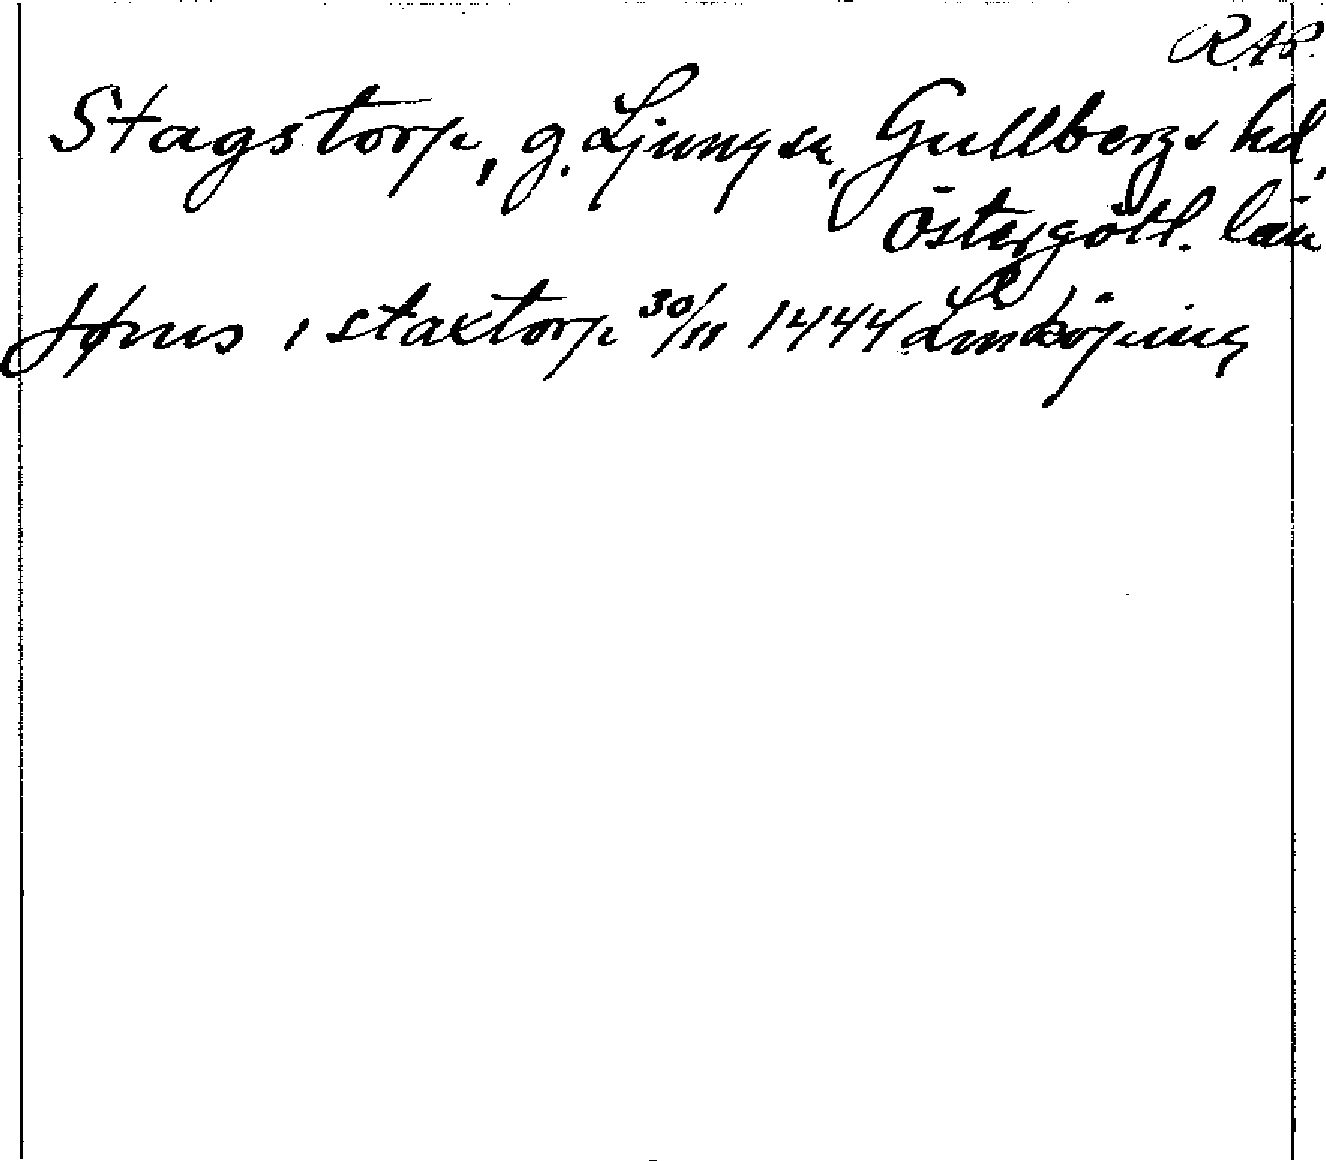 R.A.
Stagstorp, g. Ljungs sn, Gullbergs hd,
Östergötl. län
Jøns i staxtorp 30/11 1444 Linköping